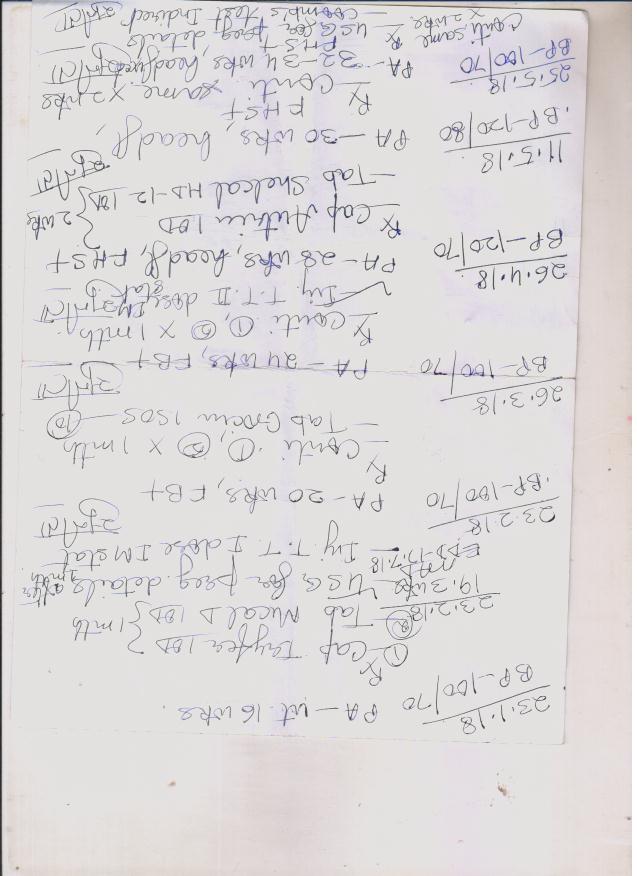 23.1.18
BP-100/70 PA - ut. 16 wks.
Rx
① Cap
② Tab Mical D 1 BD } 1 mth
23.2.18
19.3 wks USG for preg. details after 1 mth
EDD-17.7.18 - Inj T.T. I dose IM stat
23.2.18
BP-100/70 PA - 20 wks, FB+
Rx
- Conti ①, ② x 1 mth
- Tab Crocin 1 SOS - ⑩
26.3.18
BP-100/70 PA - 24 wks, FB+
Rx
- Conti ①, ② x 1 mth
- Inj T.T. II dose IM stat
26.4.18
BP-120/70 PA - 28 wks, headf, FHS+
Rx
- Cap 1 BD
- Tab Shelcal HD-12 1 BD } 2 wks
11.5.18
BP-120/80 PA - 30 wks, headf,
FHS+
Rx
- Conti same x 2 wks
25.5.18
BP-100/70 PA - 32-34 wks, head
FHS+
Rx
Conti same x 2 wks
- USG for preg. details
- Coomb's test Indirect